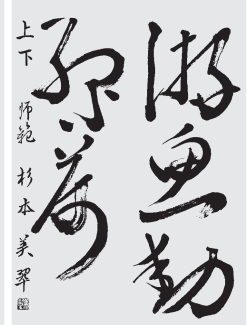 游魚動
荷
上下 師範 杉本美翠